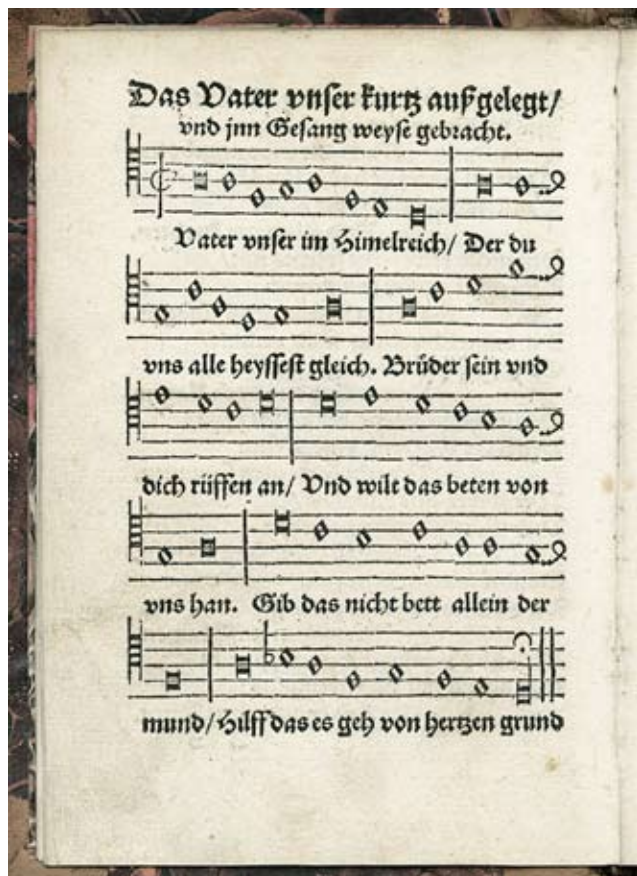 Das Vater vnser kurtz außgelegt/
vnd jnn Gesang weyse gebracht.
Vater vnser im Himelreich/ Der du
vns alle heyssest gleich. Brüder sein vnd
dich rüffen an/ Vnd wilt das beten von
vns han. Gib das nicht bett allein der
mund/ Hilff das es geh von hertzen grund